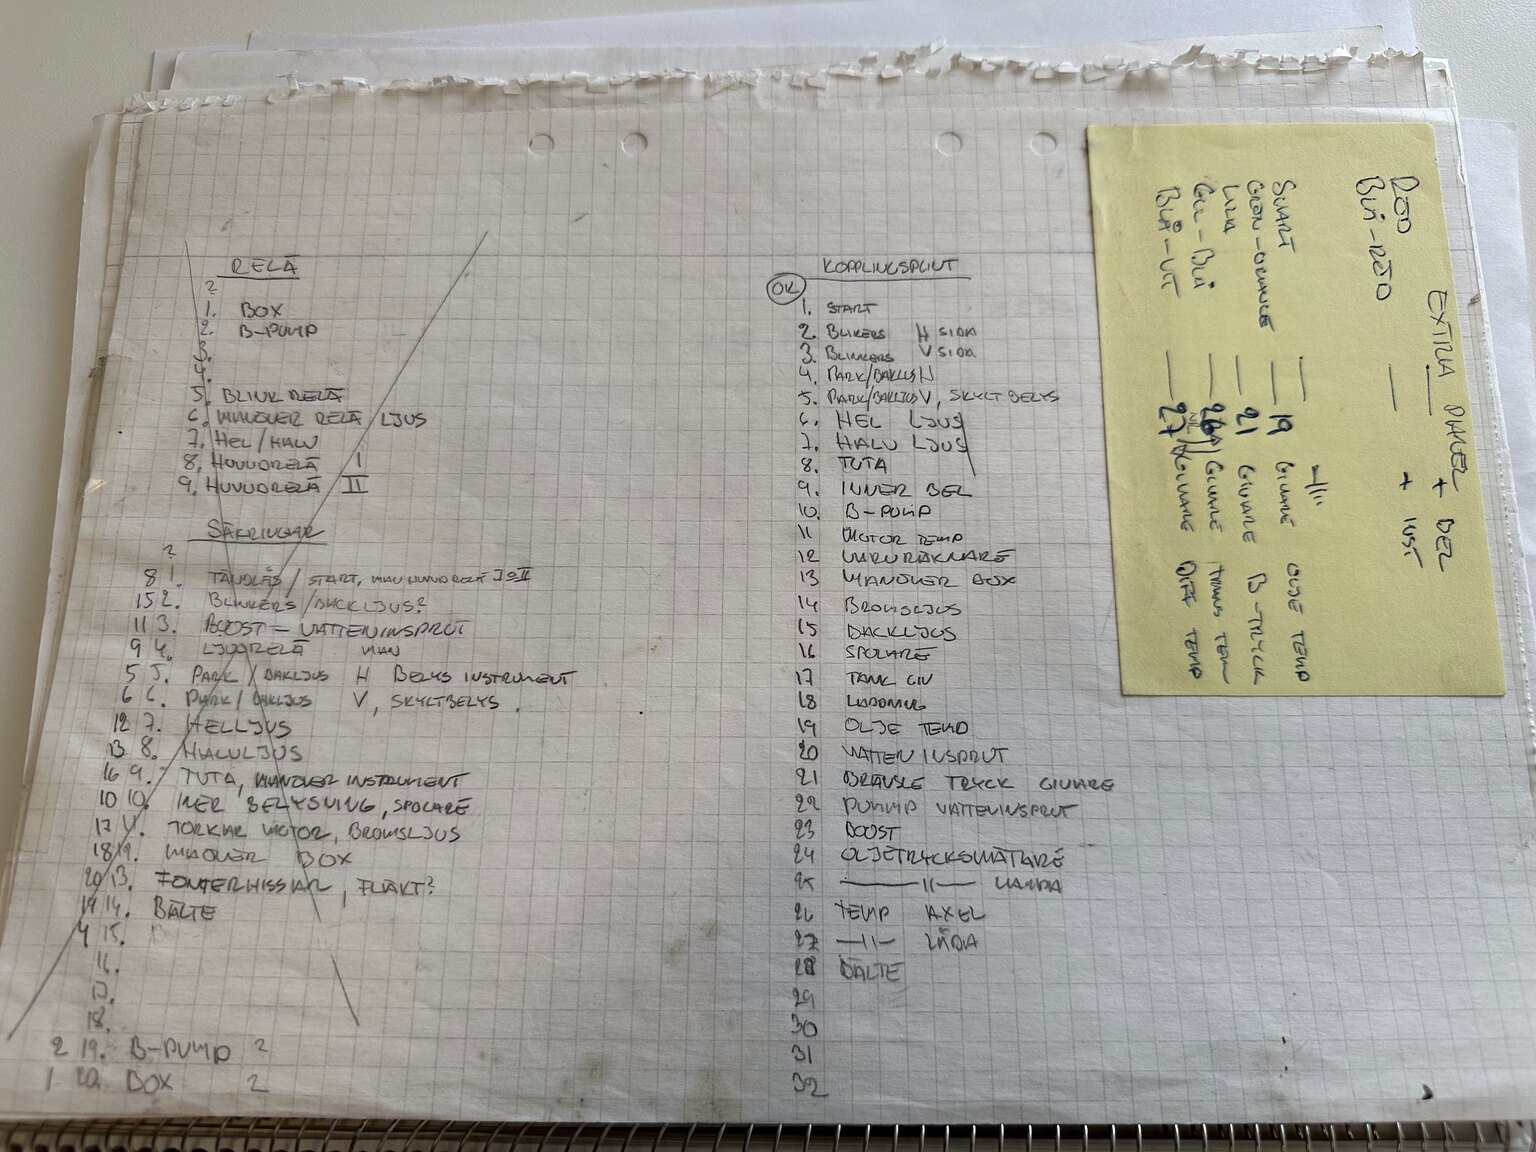 RELÄ
?
1. BOX
2. B-PUMP
3.
4.
5. BLINKRELÄ
6. MANÖVER RELÄ LJUS
7. HEL/HALV
8. HUVUDRELÄ I
9. HUVUDRELÄ II
SÄKRINGAR
?
8 1. TÄNDLÅS / START, MAN HUVUDRELÄ I o II
15 2. BLINKERS / BACKLJUS?
11 3. BOOST - VATTENINSPRUT
9 4. LJUSRELÄ MAN
5 5. PARK / BAKLJUS H BELYS INSTRUMENT
6 6. PARK / BAKLJUS V, SKYLTBELYS.
12 7. HELLJUS
13 8. HALVLJUS
16 9. TUTA, MANÖVER INSTRUMENT
10 10. INER BELYSNING, SPOLARE
17 11. TORKAR MOTOR, BROMSLJUS
18 12. MAÖVER BOX
20 13. FÖNTERHISSAR, FLÄKT?
19 14. BÄLTE
4 15.
16.
17.
18.
2 19. B-PUMP 2
1 20. BOX 2
KOPPLINGSPLINT
OK
1. START
2. BLIKERS H SIDA
3. BLINKERS V SIDA
4. PARK/BAKLJUS H
5. PARK/BAKLJUS V, SKYLTBELYS
6. HEL LJUS
7. HALV LJUS
8. TUTA
9. INNER BEL
10. B-PUMP
11 MOTOR TEMP
12 VARVRÄKNARE
13 MANÖVER BOX
14 BROMSLJUS
15 BACKLJUS
16 SPOLARE
17 TANK GIV
18 LADDNING
19 OLJE TEMP
20 VATTEN INSPRUT
21 BRÄNSLE TRYCK GIVARE
22 PUMMP VATTENINSPRUT
23 BOOST
24 OLJETRYCKSMÄTARE
25 —— 11 —— LAMPA
26 TEMP AXEL
27 —11— LÅDA
28 BÄLTE
29
30
31
32
EXTRA PLACER
RÖD — + BEL
BLÅ-RÖD — + INST
SVART — —//—
GRÖN-ORANGE — 19 GIVARE OLJE TEMP
LILA — 21 GIVARE B-TRYCK
GUL-BLÅ — 26 / GIVARE TRANS TEM
BLÅ-VIT — 27 / GIVARE DIFF TEMP